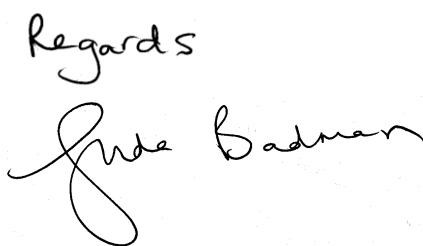 Regards
Jude Badman